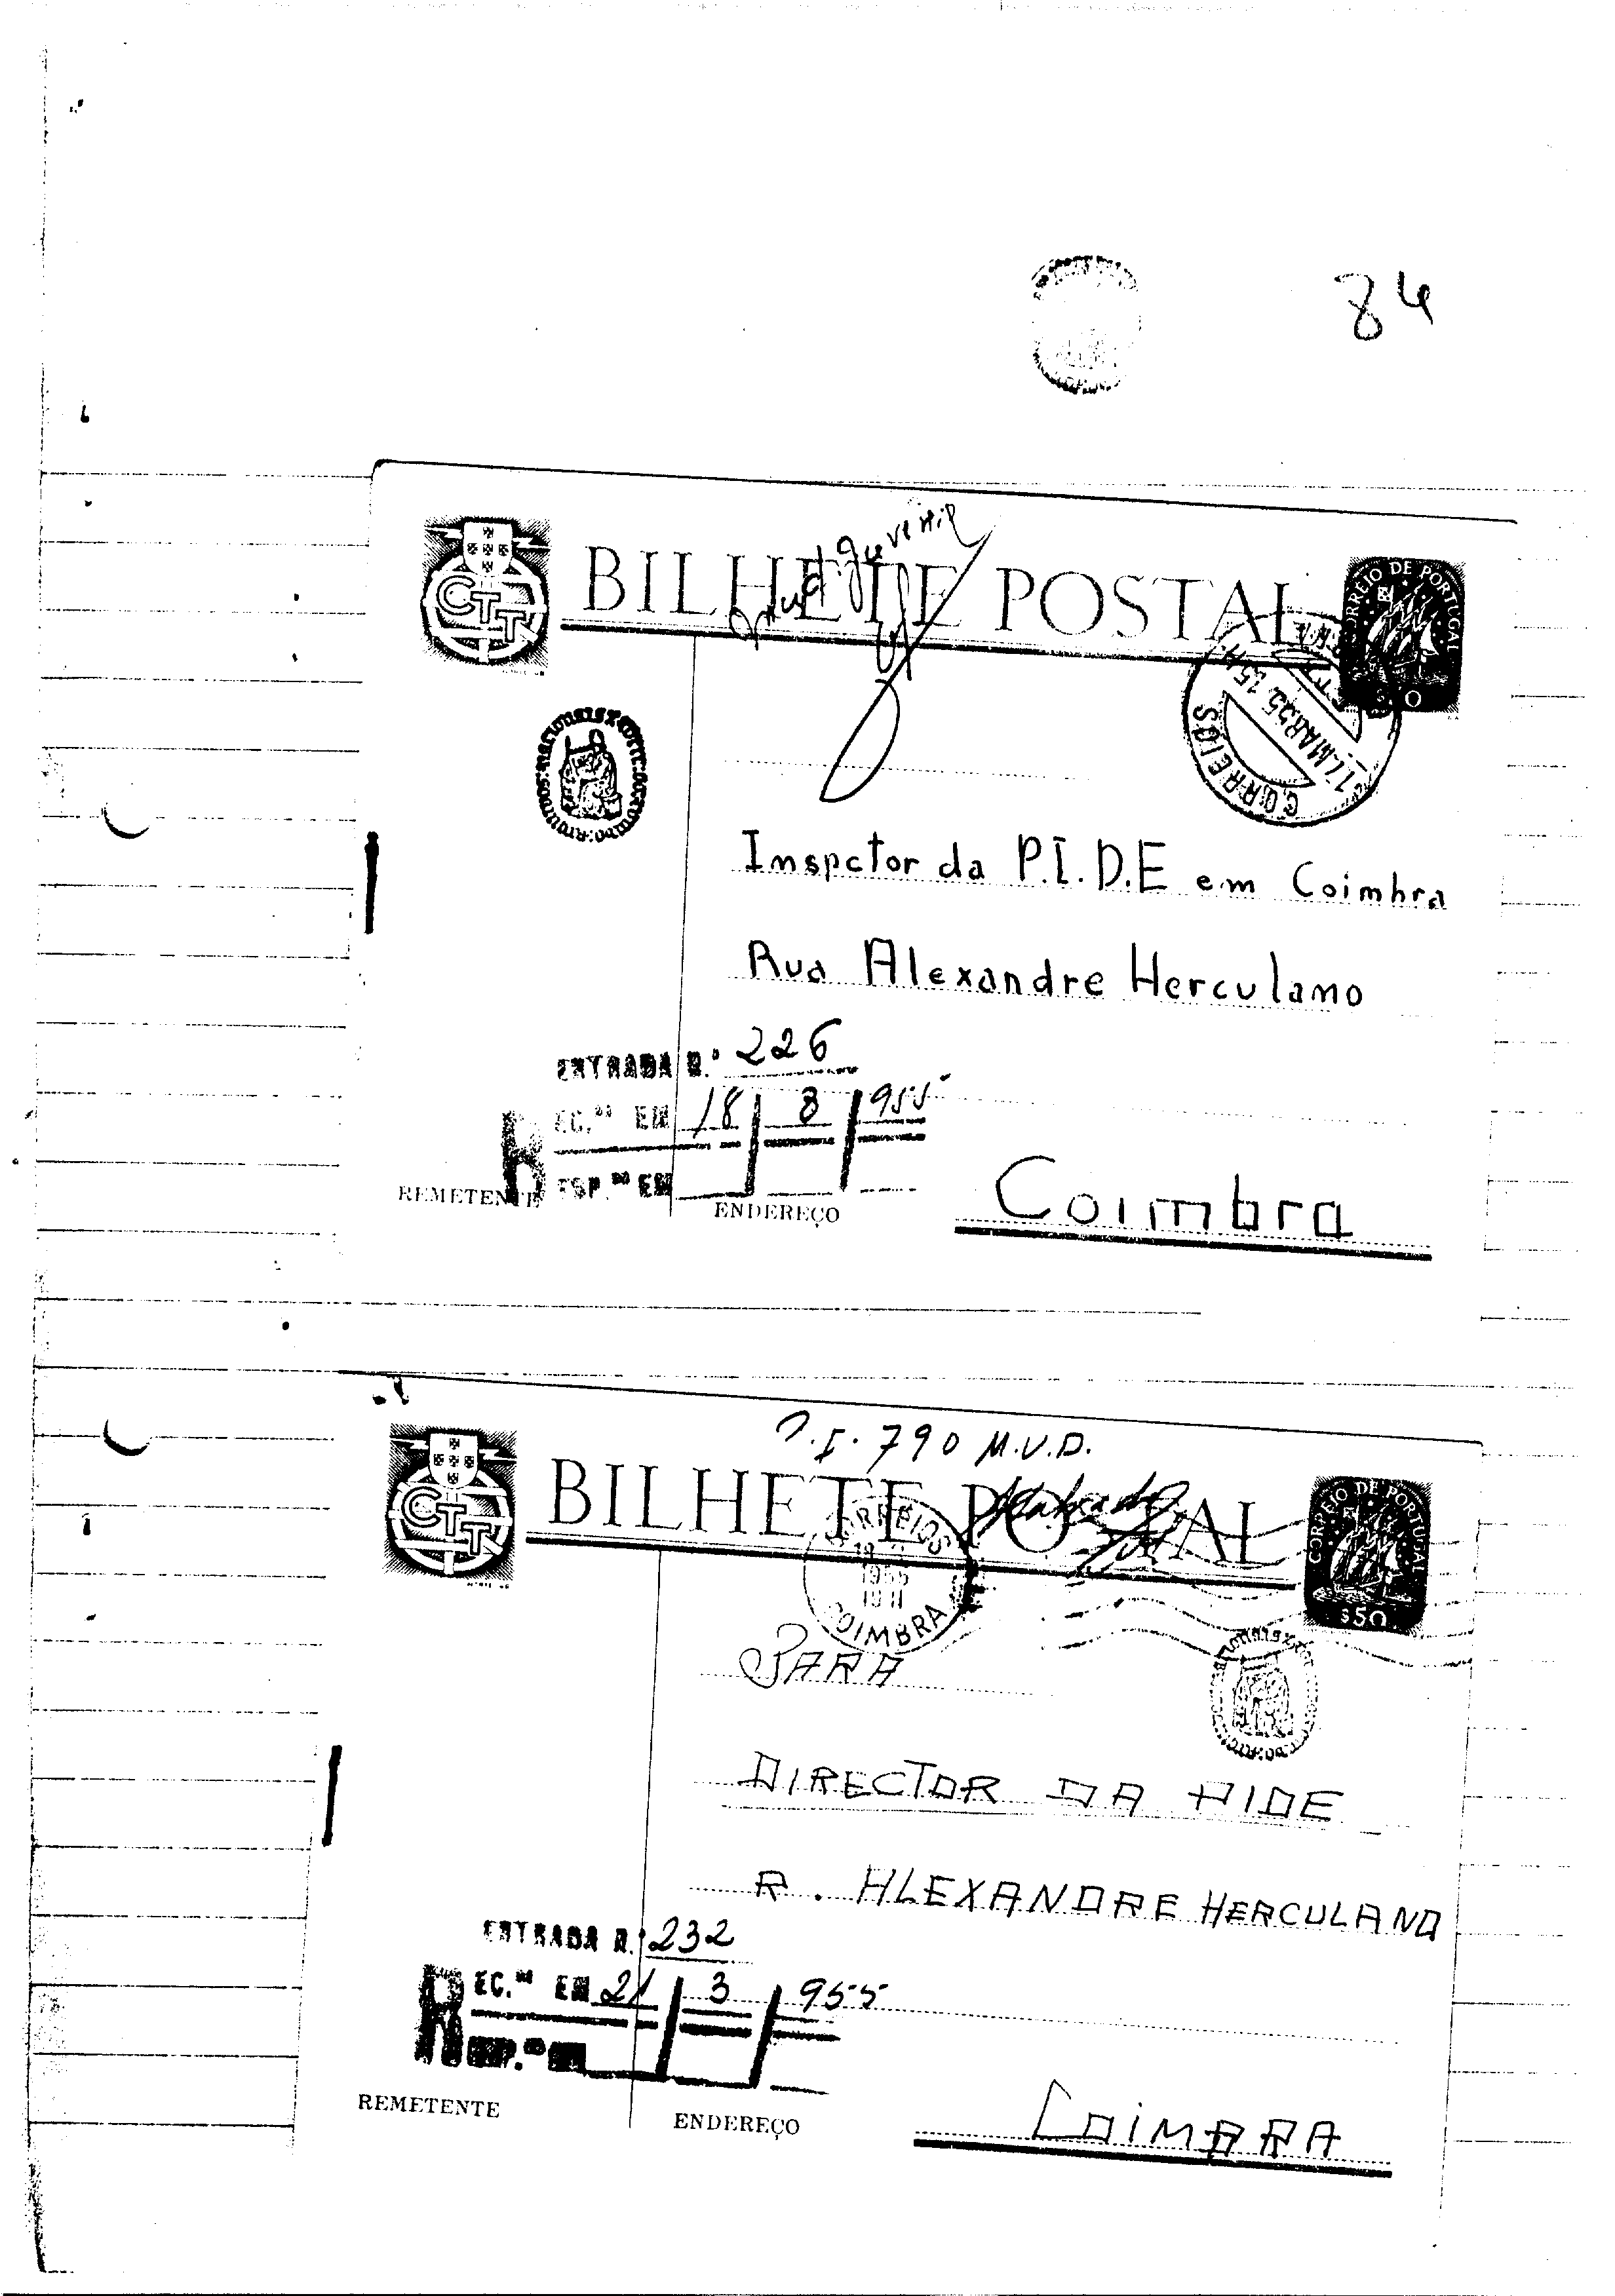 84
CTT
BILHETE POSTAL
CORREIO DE PORTUGAL
CORREIOS
Imspctor da P.I.D.E em Coimbra
Rua Alexandre Herculamo
ENTRADA N.º 226
REC.do EM 18 / 3 / 955
RESP.do EM
REMETENTE
ENDEREÇO
Coimbra
P.I. 790 M.V.D.
CTT
BILHETE POSTAL
CORREIO DE PORTUGAL
$50
CORREIOS
1955
COIMBRA
PARA
DIRECTOR DA PIDE
R. ALEXANDRE HERCULANO
ENTRADA N.º 232
REC.do EM 21 / 3 / 955
RESP.do EM
REMETENTE
ENDEREÇO
COIMBRA